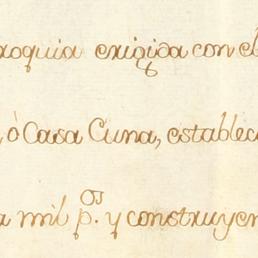 roquia exigida con el
, ó Casa Cuna, establec
a mil p.os y construyen